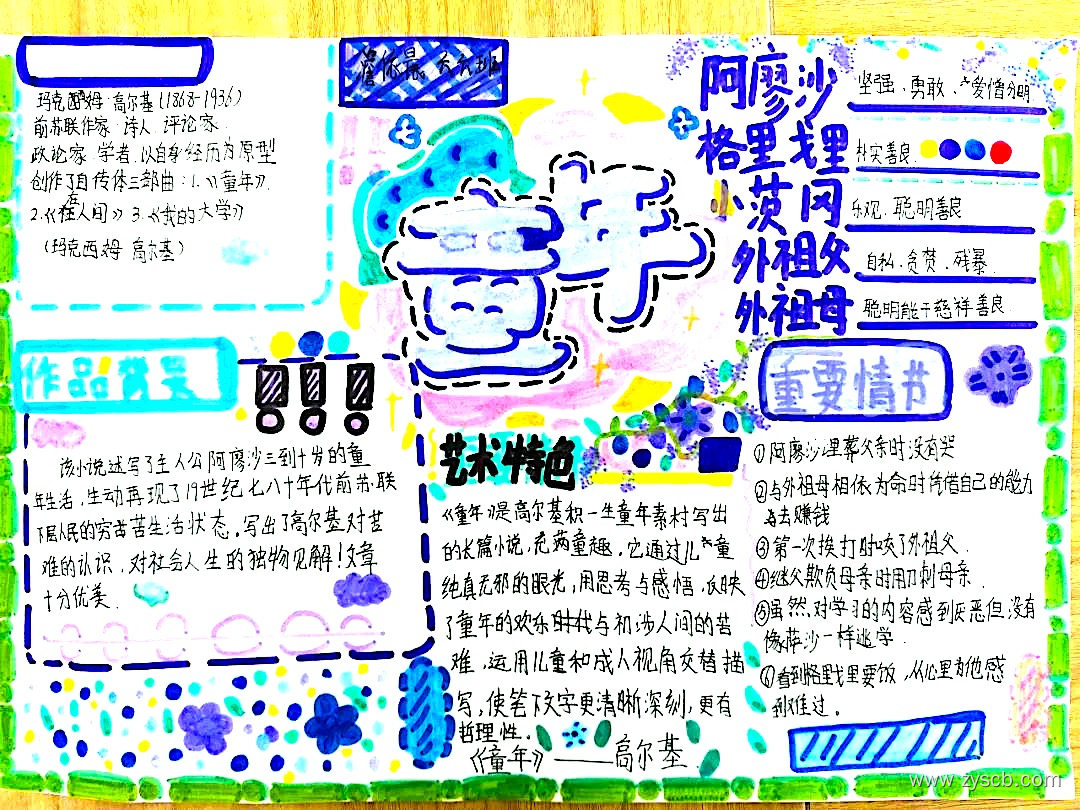 玛克西姆·高尔基(1868-1936)
前苏联作家 诗人 评论家
政论家 学者 以自身经历为原型
创作了自传体三部曲:1.《童年》
2.《在人间》3.《我的大学》
(玛克西姆 高尔基)
童年
阿廖沙 坚强、勇敢、爱憎分明
格里戈里 朴实善良
小茨冈 乐观、聪明善良
外祖父 自私、贪婪、残暴
外祖母 聪明能干慈祥善良
作品背景
该小说述写了主人公阿廖沙三到十岁的童
年生活,生动再现了19世纪七八十年代前苏联
下层人民的穷苦生活状态,写出了高尔基对苦
难的认识,对社会人生的独物见解!文章
十分优美.
艺术特色
《童年》是高尔基积一生童年素材写出
的长篇小说,充满童趣,它通过儿童
纯真无邪的眼光,用思考与感悟,反映
了童年的欢乐时代与初涉人间的苦
难,运用儿童和成人视角交替描
写,使笔下文字更清晰深刻,更有
哲理性.
《童年》——高尔基
重要情节
①阿廖沙埋葬父亲时没有哭
②与外祖母相依为命时凭借自己的能力
去赚钱
③第一次挨打时咬了外祖父.
④继父欺负母亲时用刀刺母亲.
⑤虽然对学习的内容感到厌恶但没有
像萨沙一样逃学.
⑥看到格里戈里要饭,从心里为他感
到难过.
www.zyscb.com